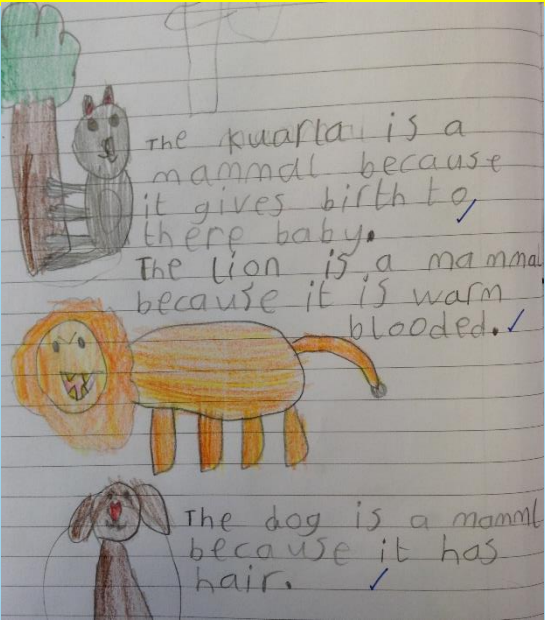 The kuarla is a
mammal because
it gives birth to
there baby.
The lion is a mammal
because it is warm
blooded.
The dog is a mamml
because it has
hair.